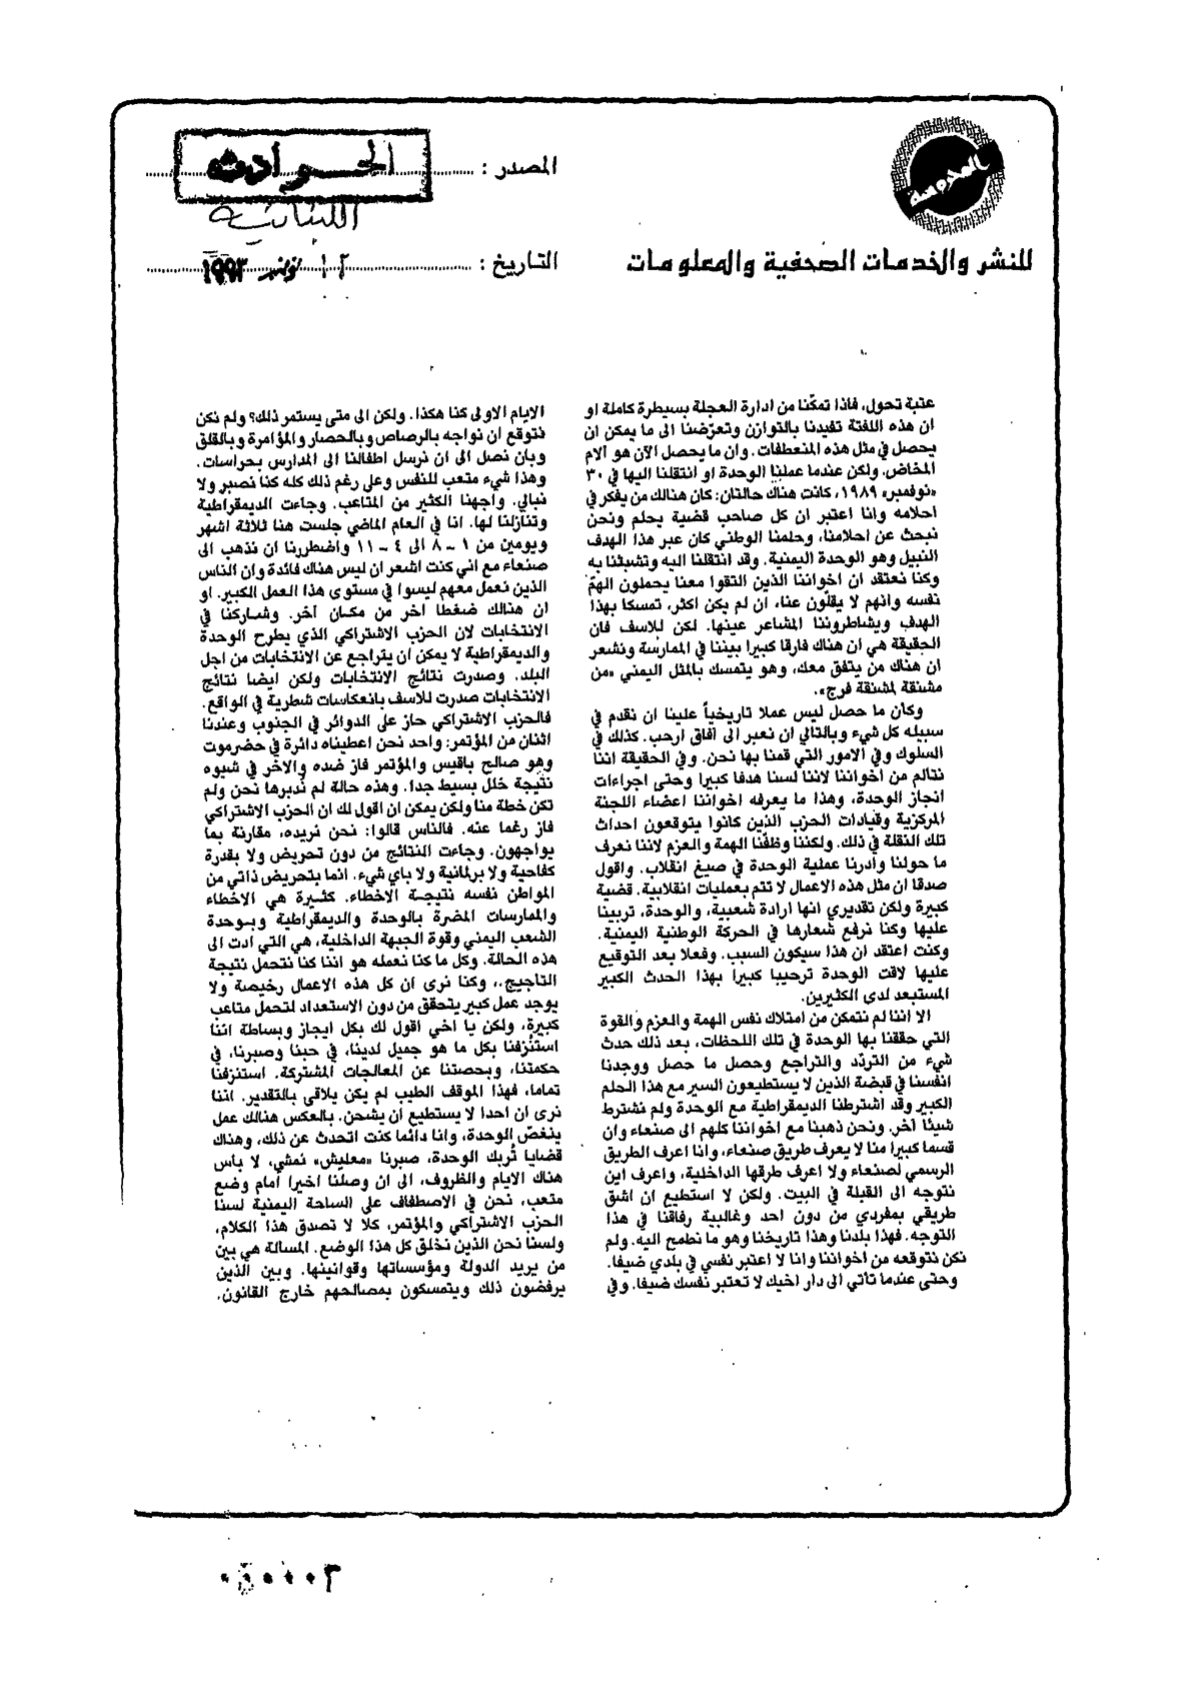 المصدر :
الحوادث
اللبنانية
للنشر والخدمات الصحفية والمعلومات
التاريخ :
نوفمبر ١٩٩٣
عتبة تحول، فاذا تمكّنا من ادارة العجلة بسيطرة كاملة او
ان هذه اللفتة تفيدنا بالتوازن وتعرّضنا الى ما يمكن ان
يحصل في مثل هذه المنعطفات. وان ما يحصل الآن هو آلام
المخاض. ولكن عندما عملنا الوحدة او انتقلنا اليها في ٣٠
«نوفمبر» ١٩٨٩، كانت هناك حالتان: كان هنالك من يفكر في
احلامه وانا اعتبر ان كل صاحب قضية يحلم ونحن
نبحث عن احلامنا، وحلمنا الوطني كان عبر هذا الهدف
النبيل وهو الوحدة اليمنية. وقد انتقلنا اليه وتشبثنا به
وكنا نعتقد ان اخواننا الذين التقوا معنا يحملون الهمّ
نفسه وانهم لا يقلّون عنا، ان لم يكن اكثر، تمسكا بهذا
الهدف ويشاطروننا المشاعر عينها. لكن للاسف فان
الحقيقة هي ان هناك فارقا كبيرا بيننا في الممارسة ونشعر
ان هناك من يتفق معك، وهو يتمسك بالمثل اليمني «من
مشنقة لمشنقة فرج».
وكان ما حصل ليس عملا تاريخياً علينا ان نقدم في
سبيله كل شيء وبالتالي ان نعبر الى آفاق ارحب. كذلك في
السلوك وفي الامور التي قمنا بها نحن. وفي الحقيقة اننا
نتالم من اخواننا لاننا لسنا هدفا كبيرا وحتى اجراءات
انجاز الوحدة، وهذا ما يعرفه اخواننا اعضاء اللجنة
المركزية وقيادات الحزب الذين كانوا يتوقعون احداث
تلك النقلة في ذلك. ولكننا وظفّنا الهمة والعزم لاننا نعرف
ما حولنا وأدرنا عملية الوحدة في صيغ انقلاب. واقول
صدقا ان مثل هذه الاعمال لا تتم بعمليات انقلابية. قضية
كبيرة ولكن تقديري انها ارادة شعبية، والوحدة، تربينا
عليها وكنا نرفع شعارها في الحركة الوطنية اليمنية.
وكنت اعتقد ان هذا سيكون السبب. وفعلا بعد التوقيع
عليها لاقت الوحدة ترحيبا كبيرا بهذا الحدث الكبير
المستبعد لدى الكثيرين.
الا اننا لم نتمكن من امتلاك نفس الهمة والعزم والقوة
التي حققنا بها الوحدة في تلك اللحظات، بعد ذلك حدث
شيء من التردّد والتراجع وحصل ما حصل ووجدنا
انفسنا في قبضة الذين لا يستطيعون السير مع هذا الحلم
الكبير وقد اشترطنا الديمقراطية مع الوحدة ولم نشترط
شيئا آخر. ونحن ذهبنا مع اخواننا كلهم الى صنعاء وان
قسما كبيرا منا لا يعرف طريق صنعاء، وانا اعرف الطريق
الرسمي لصنعاء ولا اعرف طرقها الداخلية، واعرف اين
نتوجه الى القبلة في البيت. ولكن لا استطيع ان اشق
طريقي بمفردي من دون احد وغالبية رفاقنا في هذا
التوجه. فهذا بلدنا وهذا تاريخنا وهو ما نطمح اليه. ولم
نكن نتوقعه من اخواننا وانا لا اعتبر نفسي في بلدي ضيفا.
وحتى عندما تأتي الى دار اخيك لا تعتبر نفسك ضيفا. وفي
الايام الاولى كنا هكذا. ولكن الى متى يستمر ذلك؟ ولم نكن
نتوقع ان نواجه بالرصاص وبالحصار والمؤامرة وبالقلق
وبان نصل الى ان نرسل اطفالنا الى المدارس بحراسات.
وهذا شيء متعب للنفس وعلى رغم ذلك كله كنا نصبر ولا
نبالي. واجهنا الكثير من المتاعب. وجاءت الديمقراطية
وتنازلنا لها. انا في العام الماضي جلست هنا ثلاثة اشهر
ويومين من ١ - ٨ الى ٤ - ١١ واضطررنا ان نذهب الى
صنعاء مع اني كنت اشعر ان ليس هناك فائدة وان الناس
الذين نعمل معهم ليسوا في مستوى هذا العمل الكبير. او
ان هنالك ضغطا آخر من مكان آخر. وشاركنا في
الانتخابات لان الحزب الاشتراكي الذي يطرح الوحدة
والديمقراطية لا يمكن ان يتراجع عن الانتخابات من اجل
البلد. وصدرت نتائج الانتخابات ولكن ايضا نتائج
الانتخابات صدرت للاسف بانعكاسات شطرية في الواقع.
فالحزب الاشتراكي حاز على الدوائر في الجنوب وعندنا
اثنان من المؤتمر: واحد نحن اعطيناه دائرة في حضرموت
وهو صالح باقيس والمؤتمر فاز ضده والآخر في شبوه
نتيجة خلل بسيط جدا. وهذه حالة لم نُدبرها نحن ولم
تكن خطة منا ولكن يمكن ان اقول لك ان الحزب الاشتراكي
فاز رغما عنه. فالناس قالوا: نحن نريده، مقارنة بما
يواجهون. وجاءت النتائج من دون تحريض ولا بقدرة
كفاحية ولا برلمانية ولا باي شيء. انما بتحريض ذاتي من
المواطن نفسه نتيجة الاخطاء. كثيرة هي الاخطاء
والممارسات المضرة بالوحدة والديمقراطية وبوحدة
الشعب اليمني وقوة الجبهة الداخلية، هي التي ادت الى
هذه الحالة. وكل ما كنا نعمله هو اننا كنا نتحمل نتيجة
التاجيج.، وكنا نرى ان كل هذه الاعمال رخيصة ولا
يوجد عمل كبير يتحقق من دون الاستعداد لتحمل متاعب
كبيرة، ولكن يا اخي اقول لك بكل ايجاز وبساطة اننا
استنزفنا بكل ما هو جميل لدينا، في حبنا وصبرنا، في
حكمتنا، وبحصتنا عن المعالجات المشتركة. استنزفنا
تماما، فهذا الموقف الطيب لم يكن يلاقى بالتقدير. اننا
نرى ان احدا لا يستطيع ان يشحن. بالعكس هنالك عمل
ينغصّ الوحدة، وانا دائما كنت اتحدث عن ذلك، وهناك
قضايا تُربك الوحدة، صبرنا «معليش» نمشي، لا بأس
هناك الايام والظروف، الى ان وصلنا اخيرا امام وضع
متعب، نحن في الاصطفاف على الساحة اليمنية لسنا
الحزب الاشتراكي والمؤتمر، كلا لا تصدق هذا الكلام،
ولسنا نحن الذين نخلق كل هذا الوضع. المسالة هي بين
من يريد الدولة ومؤسساتها وقوانينها. وبين الذين
يرفضون ذلك ويتمسكون بمصالحهم خارج القانون.